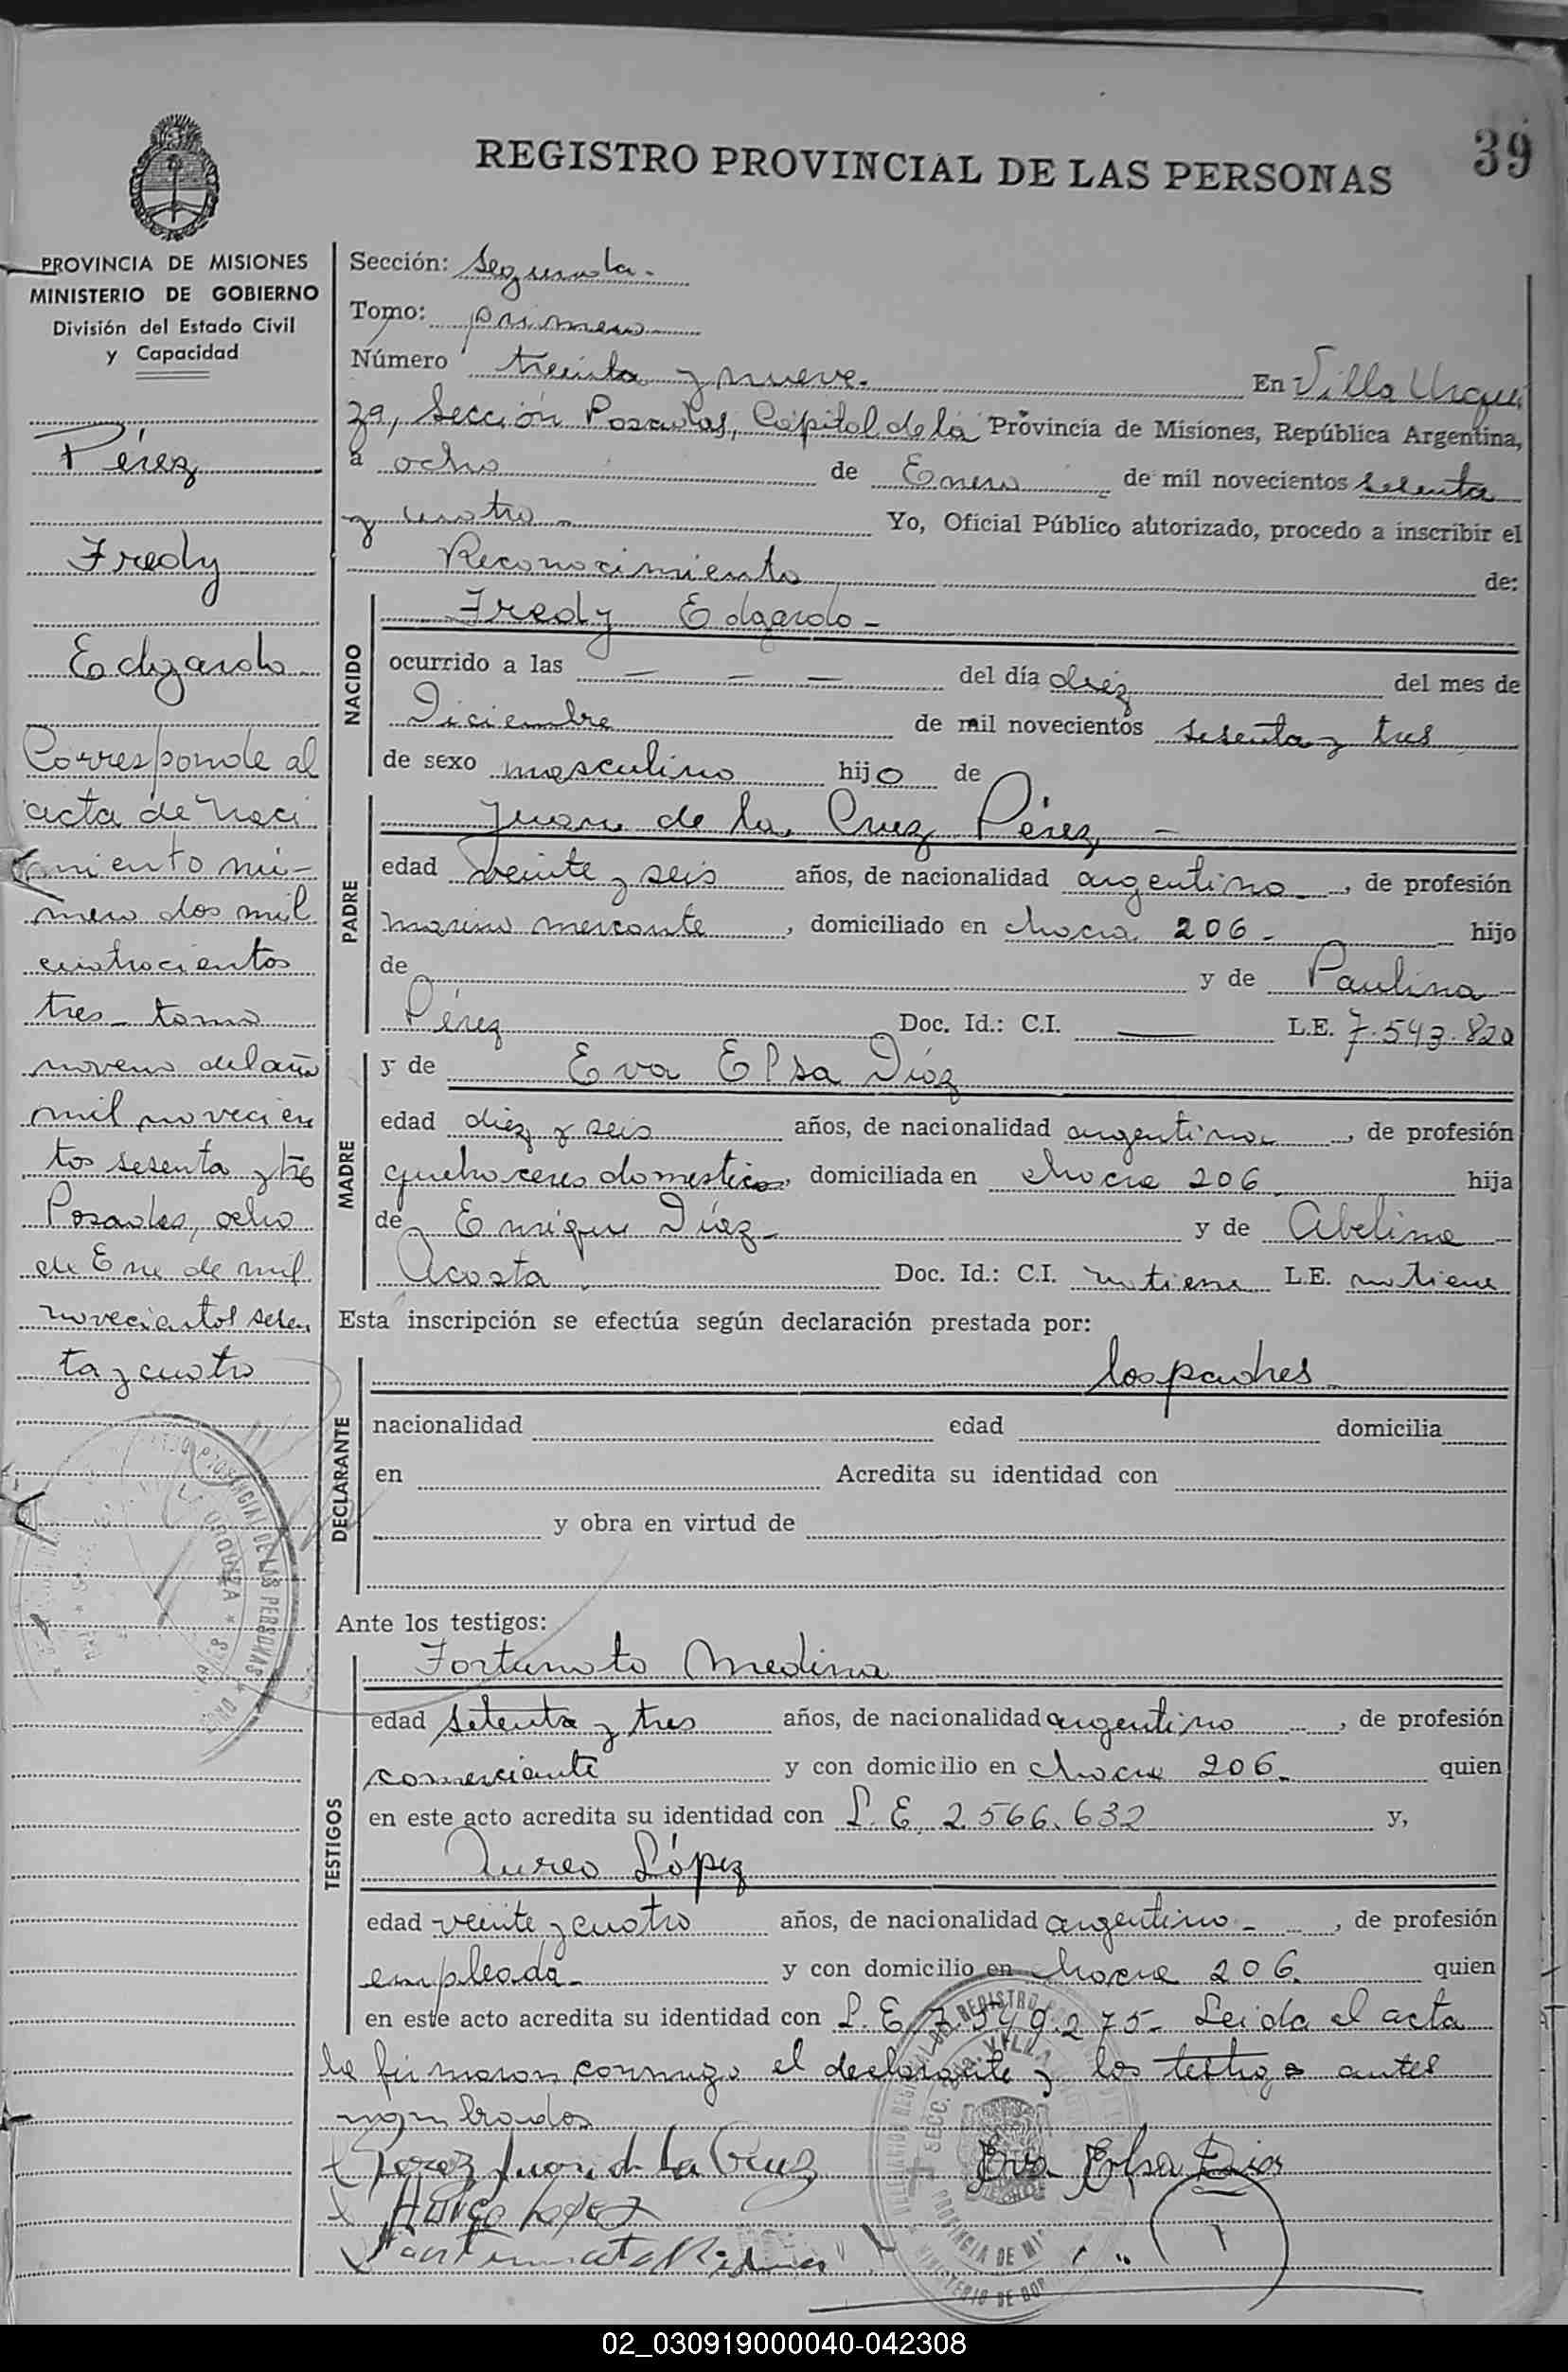 39
REGISTRO PROVINCIAL DE LAS PERSONAS
PROVINCIA DE MISIONES
MINISTERIO DE GOBIERNO
División del Estado Civil
y Capacidad
Pérez
Fredy
Edgardo
Corresponde al
acta de naci
miento nú-
mero dos mil
cuatrocientos
tres tomo
noveno del año
mil novecien
tos sesenta y tres
Posadas, ocho
de Ene de mil
novecientos seten
ta y cuatro
Sección: Segunda.
Tomo: primero
Número treinta y nueve. En Villa Urqui
za, Sección Posadas, Capital de la Provincia de Misiones, República Argentina,
a ocho de Enero de mil novecientos setenta
y cuatro - Yo, Oficial Público autorizado, procedo a inscribir el
Reconocimiento de:
NACIDO
Fredy Edgardo -
ocurrido a las — — — del día diez del mes de
Diciembre de mil novecientos sesenta y tres
de sexo masculino hijo de
PADRE
Juan de la Cruz Pérez -
edad veinte y seis años, de nacionalidad argentino, de profesión
marino mercante, domiciliado en chacra 206 - hijo
de y de Paulina
Pérez Doc. Id.: C.I. — L.E. 7.543.820
MADRE
y de Eva Elsa Díaz
edad diez y seis años, de nacionalidad argentina, de profesión
quehaceres domesticos, domiciliada en chacra 206 hija
de Enrique Díaz - y de Abelina
Acosta Doc. Id.: C.I. no tiene L.E. no tiene
Esta inscripción se efectúa según declaración prestada por:
DECLARANTE
los padres
nacionalidad edad domicilia
en Acredita su identidad con
y obra en virtud de
Ante los testigos:
TESTIGOS
Fortunato Medina
edad setenta y tres años, de nacionalidad argentino, de profesión
comerciante y con domicilio en chacra 206 - quien
en este acto acredita su identidad con L.E. 2.566.632 y,
Aureo López
edad veinte y cuatro años, de nacionalidad argentino -, de profesión
empleado - y con domicilio en chacra 206. quien
en este acto acredita su identidad con L.E. 7.549.275 - Leida el acta
la firmaron conmigo el declarante y los testigos antes
nombrados
Perez Juan de La Cruz Eva Elsa Diaz
Aureo Lopez
Fortunato Medina
PROVINCIAL DE LAS PERSONAS
URQUIZA
REGISTRO
SECC. 2da. VILLA
PROVINCIA DE MI
MINISTERIO DE GOB
02_030919000040-042308